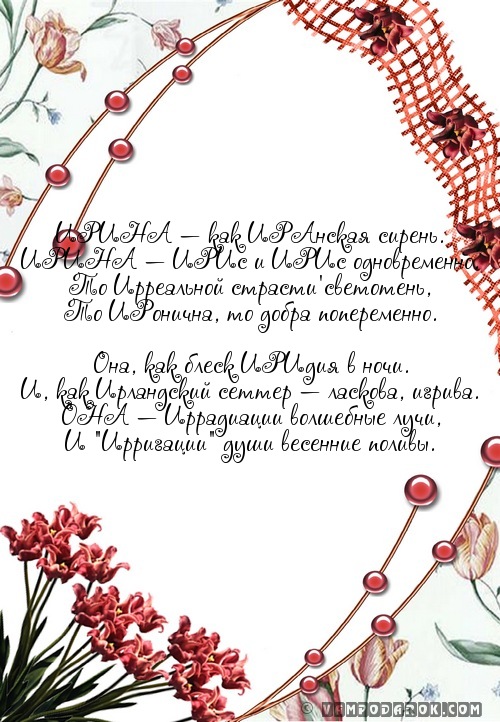 ИРИНА — как ИРАнская сирень.
ИРИНА — ИРИс и ИРИс одновременно.
То Ирреальной страсти светотень,
То ИРонична, то добра попеременно.
Она, как блеск ИРИдия в ночи.
И, как Ирландский сеттер — ласкова, игрива.
ОНА — Иррадиации волшебные лучи,
И "Ирригации" души весенние поливы.
© VAMPODAROK.COM